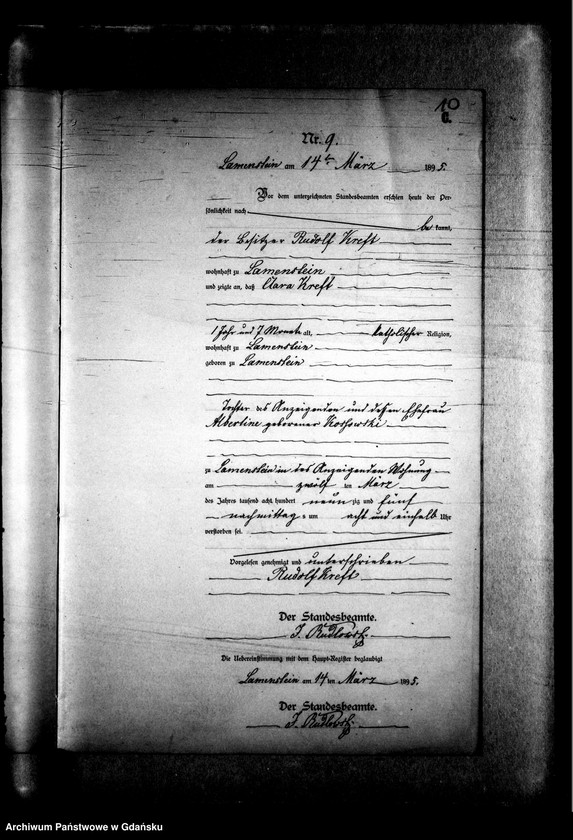 10
Nr. 9.
Lamenstein am 14ten März 1895.
Vor dem unterzeichneten Standesbeamten erschien heute der Per-
sönlichkeit nach
be kannt,
der Besitzer Rudolf Kreft
wohnhaft zu Lamenstein
und zeigte an, daß Clara Kreft
1 Jahr und 7 Monate alt, katholischer Religion,
wohnhaft zu Lamenstein
geboren zu Lamenstein
Tochter des Anzeigenden und dessen Ehefrau
Albertine geborener Koskowski
zu Lamenstein in des Anzeigenden Wohnung
am zwölf ten März
des Jahres tausend acht hundert neun zig und fünf
nachmittag s um acht und einhalb Uhr
verstorben sei.
Vorgelesen, genehmigt und unterschrieben
Rudolf Kreft
Der Standesbeamte.
Die Uebereinstimmung mit dem Haupt-Register beglaubigt
Lamenstein am 14 ten März 1895.
Der Standesbeamte.
Archiwum Państwowe w Gdańsku